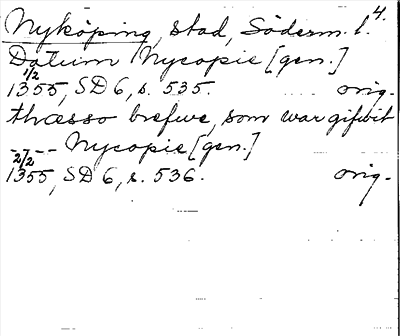 4.
Nyköping, stad, Söderm. l.
Datum Nycopie [gen.]
1/2
1355, SD 6, s. 535. orig.
thæsso brefwe, som war gifwit
--- Nycopie [gen.]
2/2
1355, SD 6, s. 536. orig.